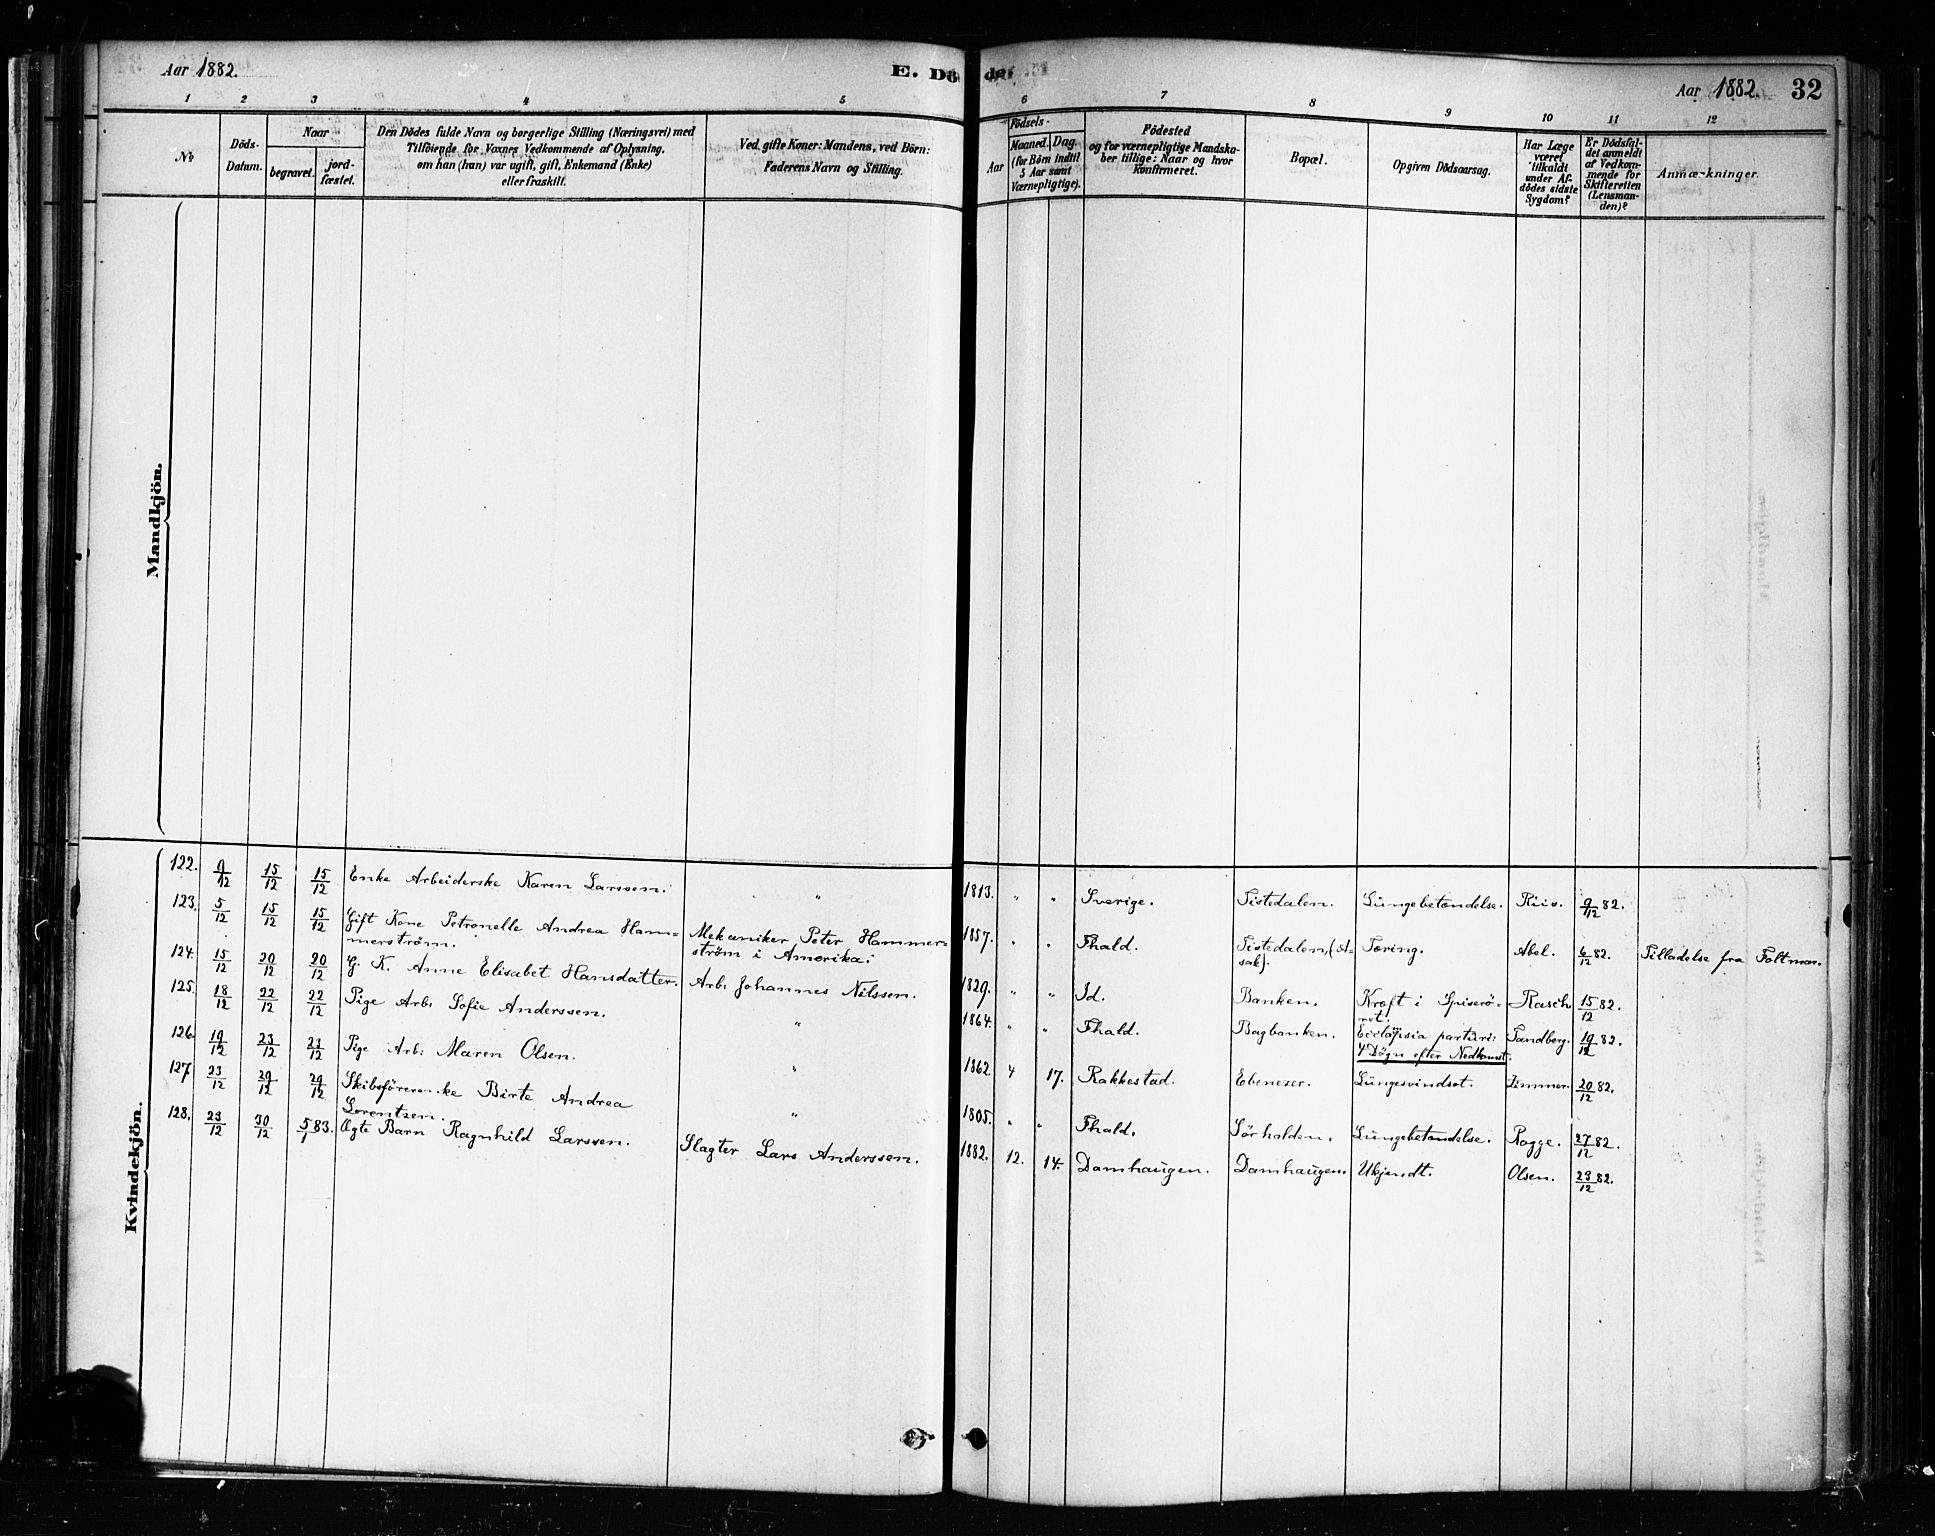 Aar 1882.
E. Döde.
Aar 1882. 32
1 2 3 4 5 6 7 8 9 10 11 12
No
Döds-
Datum.
Naar
begravet.
jord-
fæstet.
Den Dödes fulde Navn og borgerlige Stilling (Næringsvei) med
Tilföiende for Voxnes Vedkommende af Oplysning,
om han (hun) var ugift, gift, Enkemand (Enke)
eller fraskilt.
Ved gifte Koner: Mandens, ved Börn:
Faderens Navn og Stilling.
Födsels-
Aar
Maaned. Dag.
(for Börn indtil
5 Aar samt
Værnepligtige).
Födested
og for værnepligtige Mandska-
ber tillige: Naar og hvor
konfirmeret.
Bopæl.
Opgiven Dödsaarsag.
Har Læge
været
tilkaldt
under Af-
dödes sidste
Sygdom?
Er Dödsfal-
det anmeldt
af Vedkom-
mende for
Skifteretten
(Lensman-
den)?
Anmærkninger.
Mandkjön.
Kvindekjön.
122. 9/12 15/12 15/12 Enke Arbeiderske Karen Larssen. " 1813. " " Sverige. Tistedalen. Lungebetændelse. Riis. 9/12 82.
123. 5/12 15/12 15/12 Gift Kone Petronelle Andrea Ham=
merström. Mekaniker Peter Hammer=
ström i Amerika. 1857. " " Fhald. Tistedalen, (A-
sak). Tæring. Abel. 6/12 82. Tilladelse fra Foltmar.
124. 15/12 20/12 20/12 G. K. Anne Elisabet Hansdatter. Arb. Johannes Nilssen. 1829. " " Id. Banken. Kræft i Spiserö-
ret. Rasch 15/12 82.
125. 18/12 22/12 22/12 Pige Arb. Sofie Anderssen. " 1864. " " Fhald. Bagbanken. Eclampsia parturi:
4 Døgn efter Nedkomst. Sandberg. 19/12 82.
126. 19/12 23/12 23/12 Pige Arb: Maren Olsen. " 1862. 4 17. Rakkestad. Ebenezer. Lungesvindsot. Zimmer. 20/12 82.
127. 23/12 29/12 29/12 Skibsförerenke Birte Andrea
Lorentzen. " 1805. " " Fhald. Sörhalden. Lungebetændelse. Rogge. 27/12 82.
128. 23/12 30/12 5/1 83. Ægte Barn Ragnhild Larssen. Slagter Lars Anderssen. 1882. 12. 14. Damhaugen. Damhaugen. Ukjendt. Olsen. 23/12 82.